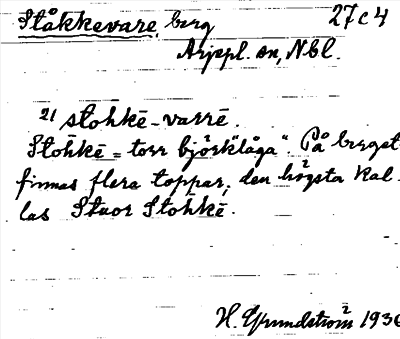 Ståkkevare, berg 27c4
Arjepl. sn, Nbl.
21 stohkē-varrē.
Stohkē = torr björk"låga". På berget
finnas flera toppar; den högsta kal-
las Stuor Stohkē.
H. Grundström 1936